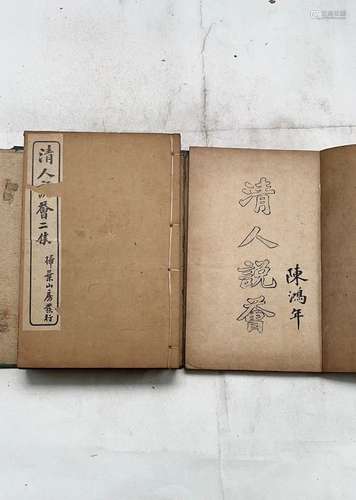 清人說薈二集
掃葉山房發行
清人説薈
陳鴻年